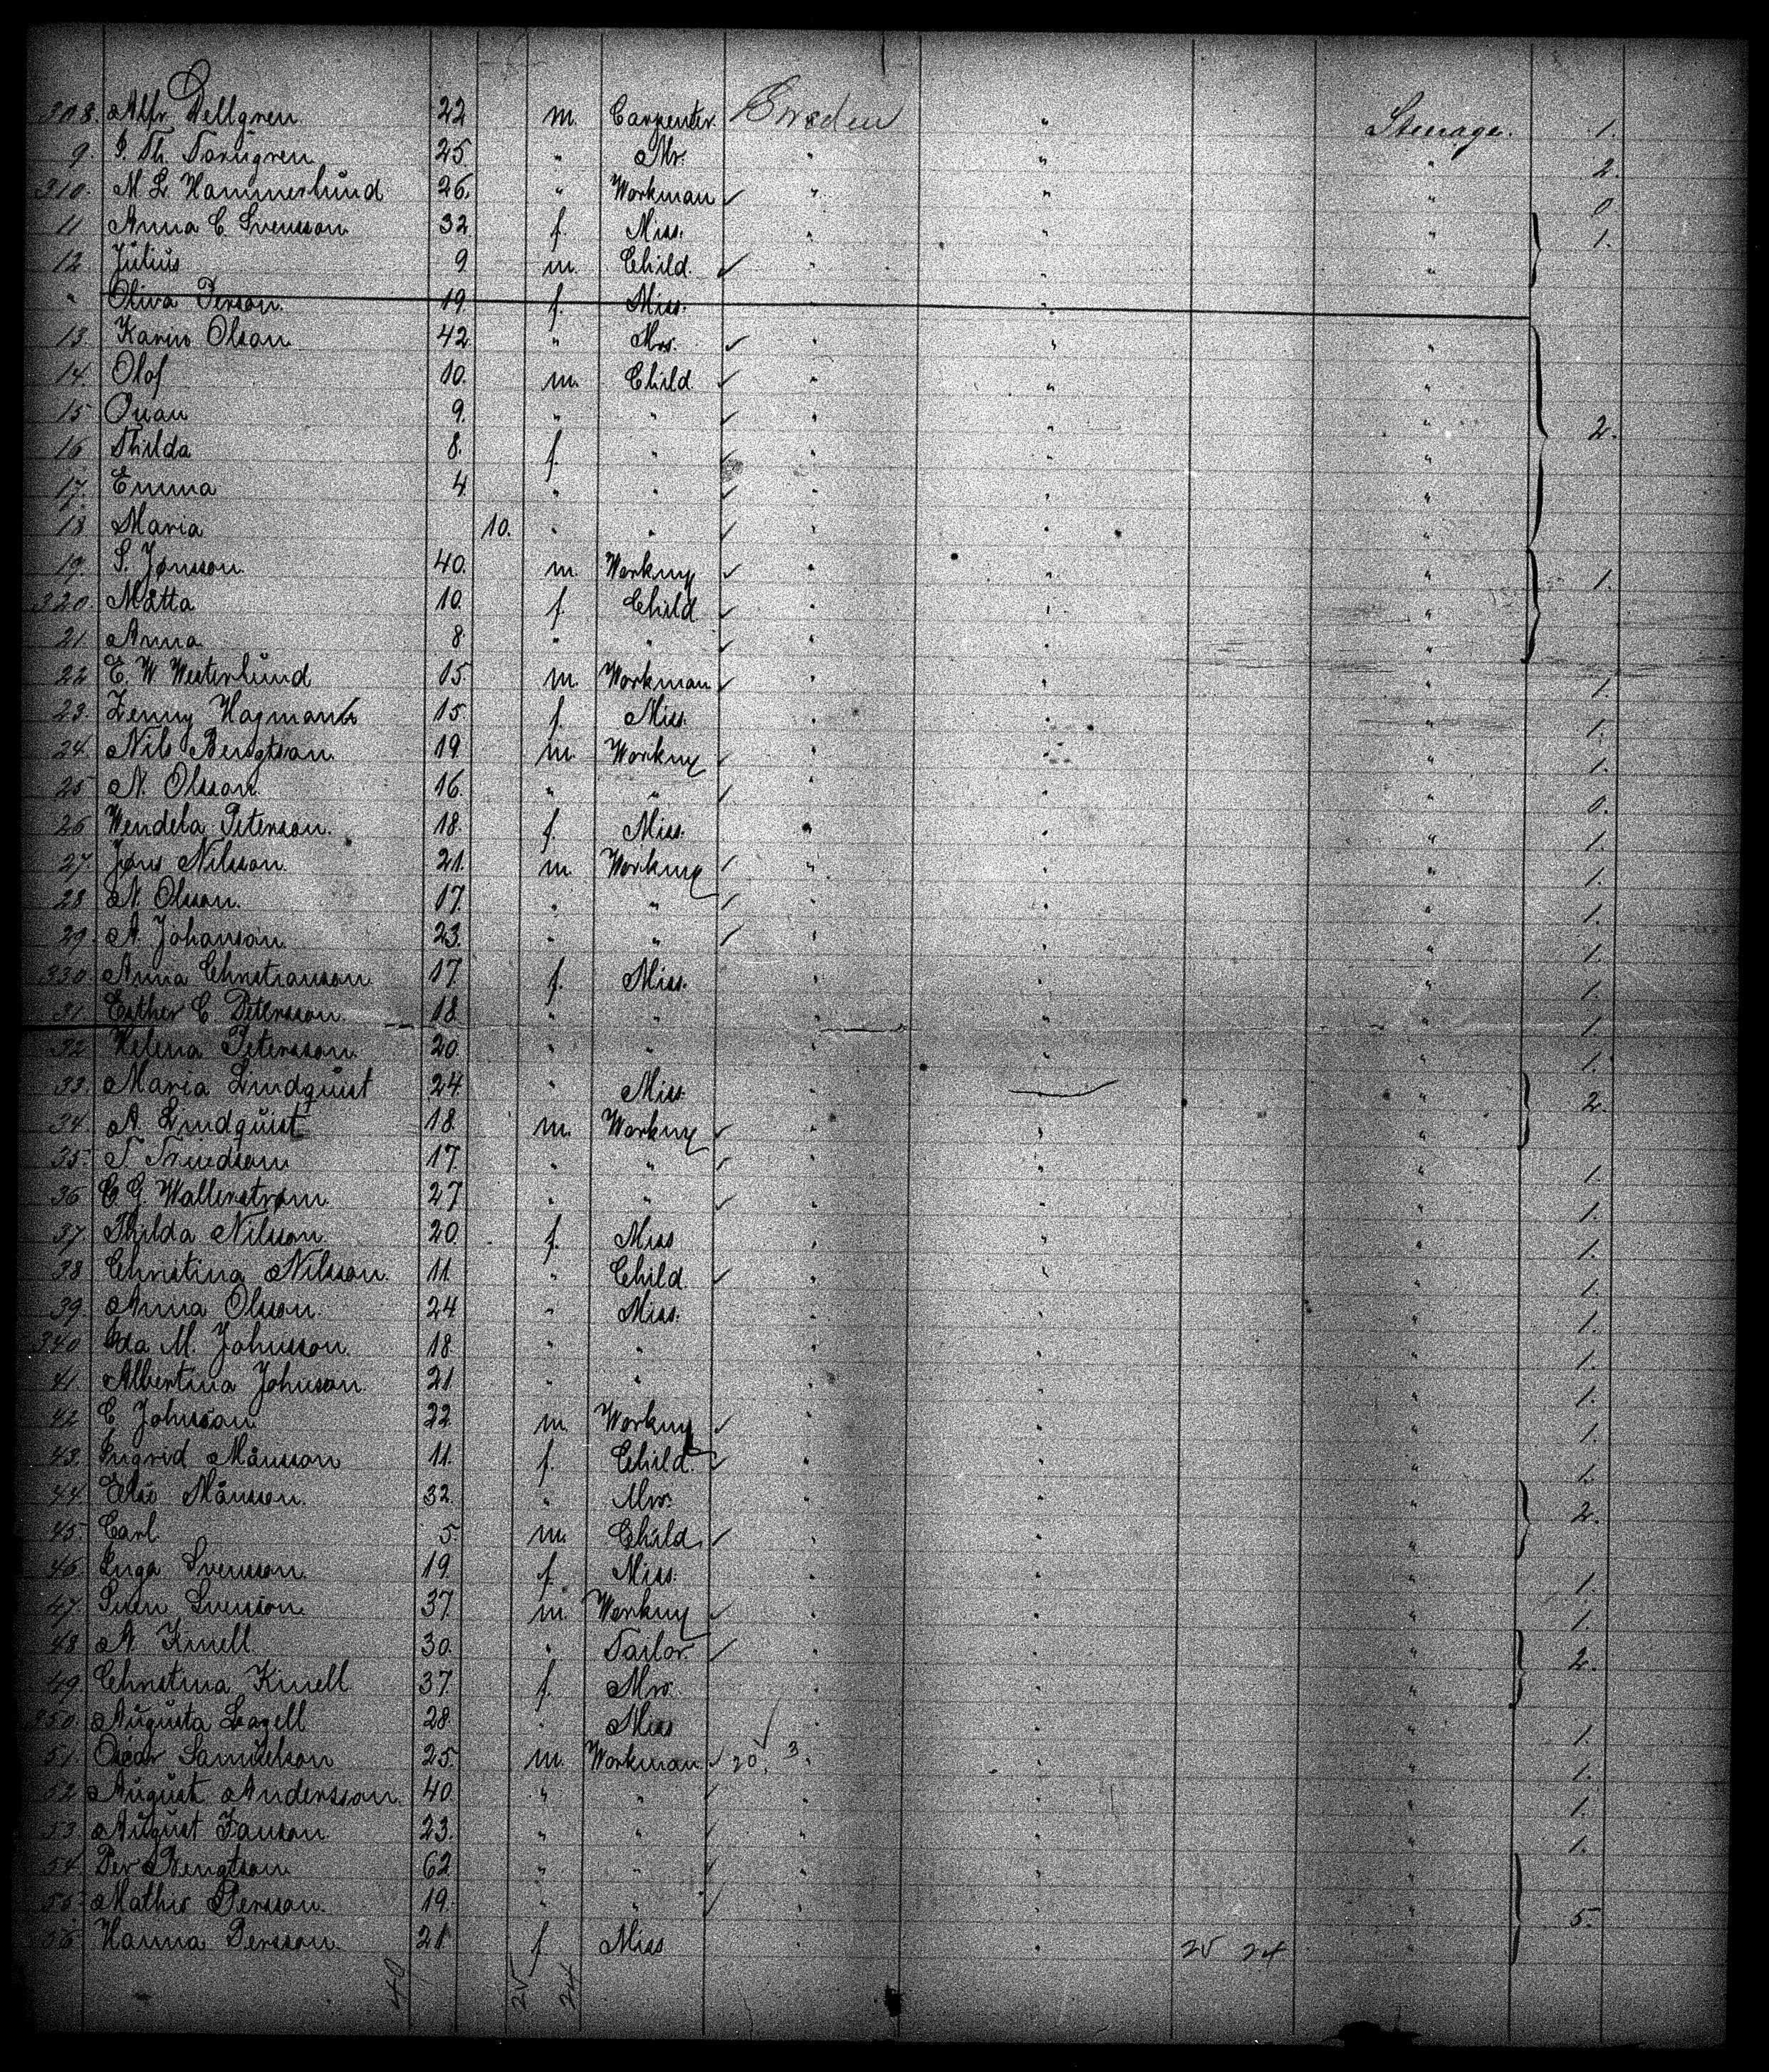 308. Alfr. Dellgren 22 m. Carpenter. Sweden " Steerage. 1.
9. J. Th. Torngren 25. " Mr. " " " 2.
310. M L. Hammerlund 26. " Workman ✓ " " " 0
11 Anna C. Svensson 32 f. Miss. " " " 1.
12. Julius 9 m. Child. ✓ " " "
" Oliva Person. 19. f. Miss. " "
13. Karin Olson 42 " Mrs. ✓ " " "
14. Olof 10. m. Child ✓ " " "
15 9. " " ✓ " " " 2.
16 Thilda 8. f. " ✓ " " "
17. Emma 4 " " ✓ " " "
18 Maria 10. " " ✓ " " "
19. S. Jønsson. 40. m. Workmg ✓ " " " 1.
320. Matta 10. f. Child ✓ " " "
21. Anna 8. " " ✓ " " "
22 E. W Westerlund 15. m. Workman ✓ " " " 1.
23. Zenny Hagman 15. f. Miss. " " " 1.
24. Nils Bengtson. 19 m. Workmg ✓ " " " 1.
25 N. Olsson. 16. " " ✓ " " " 0.
26 Wendela Peterson. 18. f. Miss. " " " 1.
27. Jøns Nilsson. 21. m. Workmg ✓ " " " 1.
28 N. Olsson. 17. " " ✓ " " " 1.
29. A. Johanson 23. " " ✓ " " " 1.
330. Anna Christianson 17. f. Miss. " " " 1.
31. Esther C. Petersson. 18 " " " " " 1.
32 Helena Petersson. 20. " " " " " 1.
33. Maria Lindquist 24. " Miss. " " 2.
34. A. Lindquist 18. m. Workmg ✓ " " "
35. T. 17. " " ✓ " " " 1.
36 C G. Wallerstrøm 27 " " ✓ " " " 1.
37. Thilda Nilsson. 20. f. Miss " " " 1.
38 Christina Nilsson. 11. " Child ✓ " " " 1.
39. Anna Olsson. 24 " Miss. " " " 1.
340 Ida M. Johnsson. 18. " " " " " 1.
41. Albertina Johnson. 21. " " " " " 1.
42 C Johnson 22. m. Workmg ✓ " " " 1.
43. Ingrid Månsson 11. f. Child. ✓ " " " 1.
44. Elsi Månsson. 32. " Mrs. " " " 2.
45. Carl 5. m. Child, ✓ " " "
46. Inga Svensson. 19. f. Miss. " " " 1.
47. Sven Svensson. 37. m. Workmg ✓ " " " 1.
48. A. Kinell 30. " Tailor. ✓ " " " 2.
49. Christina Kinell 37. f. Mrs. " " "
350. Augusta Lagell 28. " Miss " " " 1.
51. Oscar Samuelson 25. m. Workman ✓ 20. 3. " " 1.
52 August Andersson. 40. " " ✓ " " 1.
53. August Janson. 23. " " ✓ " " " 1.
54. Per Bengtson 62 " " ✓ " " "
55. Mathis Persson. 19. " " ✓ " " " 5.
56 Hanna Persson. 21 f Miss " " 25 24 "
40 25 24